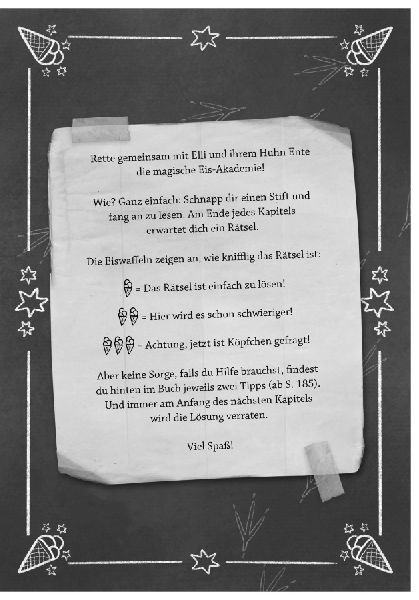 Rette gemeinsam mit Elli und ihrem Huhn Ente
die magische Eis-Akademie!
Wie? Ganz einfach: Schnapp dir einen Stift und
fang an zu lesen. Am Ende jedes Kapitels
erwartet dich ein Rätsel.
Die Eiswaffeln zeigen an, wie knifflig das Rätsel ist:
= Das Rätsel ist einfach zu lösen!
= Hier wird es schon schwieriger!
= Achtung, jetzt ist Köpfchen gefragt!
Aber keine Sorge, falls du Hilfe brauchst, findest
du hinten im Buch jeweils zwei Tipps (ab S. 185).
Und immer am Anfang des nächsten Kapitels
wird die Lösung verraten.
Viel Spaß!